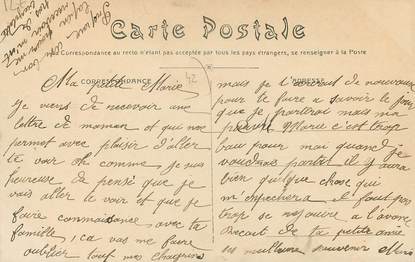 Carte Postale
La Correspondance au recto n'étant pas acceptée par tous les pays étrangers, se renseigner à la Poste
CORRESPONDANCE
ADRESSE
42
Ma petite Marie
Je viens de recevoir une
lettre de maman et qui me
permet avec plaisir d'aller
te voir oh comme je suis
heureuse de pensé que je
vais aller te voir et que je
faire connaissance avec ta
famille, ca vas me faire
oublier touf mes chagrins
mais je t'ecrirai de nouveaux
pour te faire a savoir le jour
que je partirai mais ma
pauvre Marie c'est trop
beau pour moi quand je
voudrais partir il y aura
bien quelque chose qui
m'enpechera il faut pas
trop se rejouire a l'avance
Recoit de ta petite amie
ses meilleure souvenir Mimi